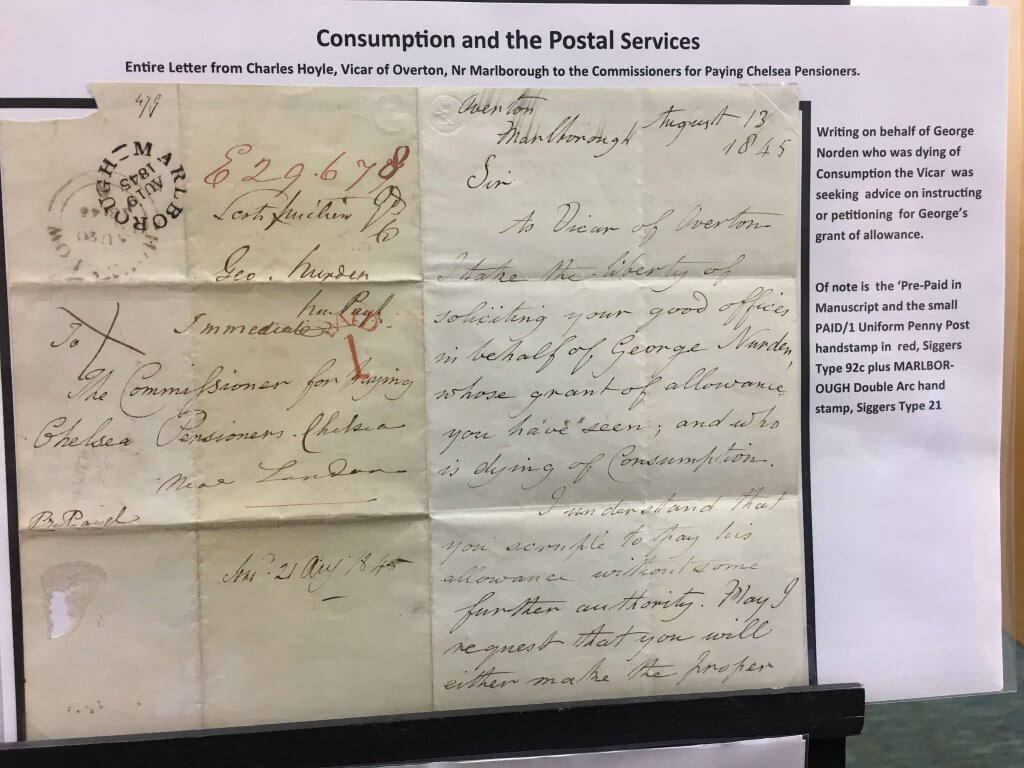 Consumption and the Postal Services
Entire Letter from Charles Hoyle, Vicar of Overton, Nr Marlborough to the Commissioners for Paying Chelsea Pensioners.
479
MARLBOROUGH
AU19
1845
E29.678
Geo. Nurden
Immediate
PAID
1
To
The Commissioner for Paying
Chelsea Pensioners. Chelsea
near London
Pre Paid
21 Aug 1845
Overton
Marlborough August 13
1845
Sir
As Vicar of Overton
I take the liberty of
soliciting your good offices
in behalf of George Nurden,
whose grant of allowance
you have seen; and who
is dying of Consumption.
I understand that
you scruple to pay his
allowance without some
further authority. May I
request that you will
either make the proper
Writing on behalf of George
Norden who was dying of
Consumption the Vicar was
seeking advice on instructing
or petitioning for George's
grant of allowance.
Of note is the 'Pre-Paid in
Manuscript and the small
PAID/1 Uniform Penny Post
handstamp in red, Siggers
Type 92c plus MARLBOR-
OUGH Double Arc hand
stamp, Siggers Type 21